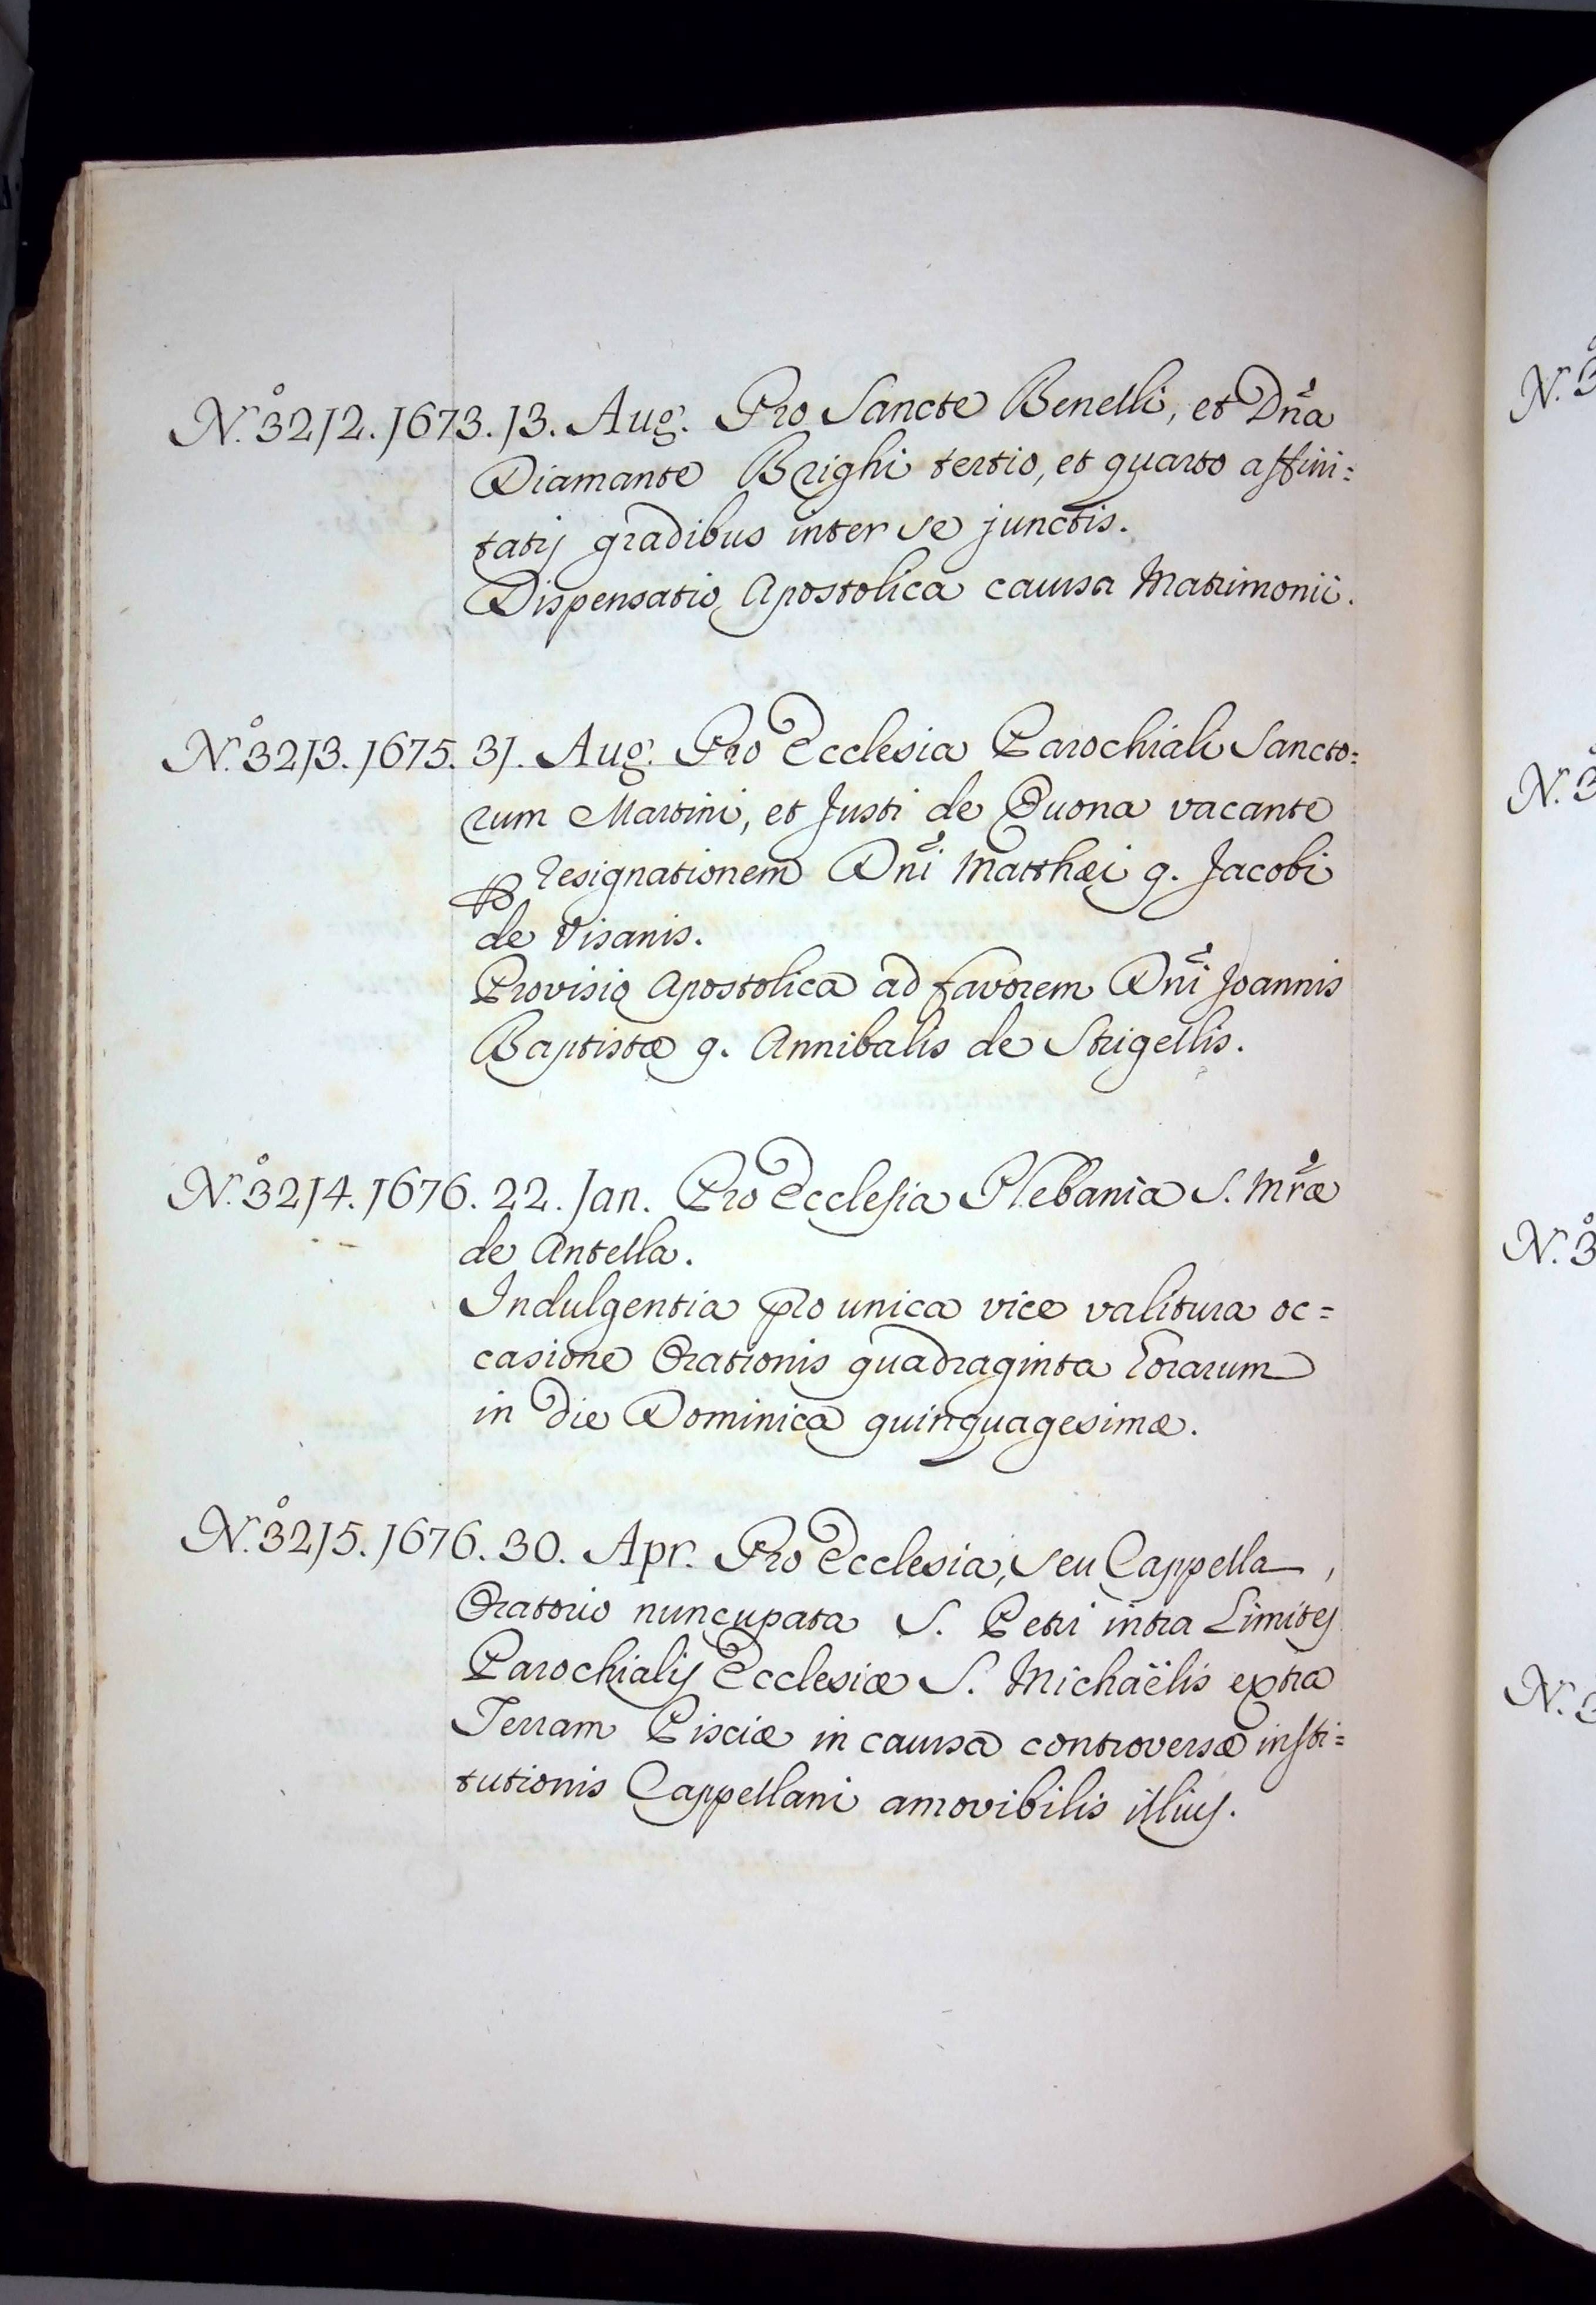 N.º 3212. 1673. 13. Aug. Pro Sancte Benelli, et Dña
Diamante Brighi tertio, et quarto affini=
tatis gradibus inter se junctis.
Dispensatio Apostolica causa Matrimonii.
N.º 3213. 1675. 31. Aug. Pro Ecclesia Parochiali Sancto=
rum Martini, et Justi de Quona vacante
per resignationem Dñi Matthæi q. Jacobi
de Visanis.
Provisio Apostolica ad favorem Dñi Joannis
Baptistæ q. Annibalis de Strigellis.
N.º 3214. 1676. 22. Jan. Pro Ecclesia Plebania S. Mræ
de Antella.
Indulgentia pro unica vice valitura oc=
casione Orationis quadraginta horarum
in die Dominica quinquagesimæ.
N.º 3215. 1676. 30. Apr. Pro Ecclesia, seu Cappella,
Oratorio nuncupata S. Petri intra Limites
Parochialis Ecclesiæ S. Michaëlis extra
Terram Pisciæ in causa controversæ insti=
tutionis Cappellani amovibilis illius.
N.º 3
N. 3
N.º 3
N. 3